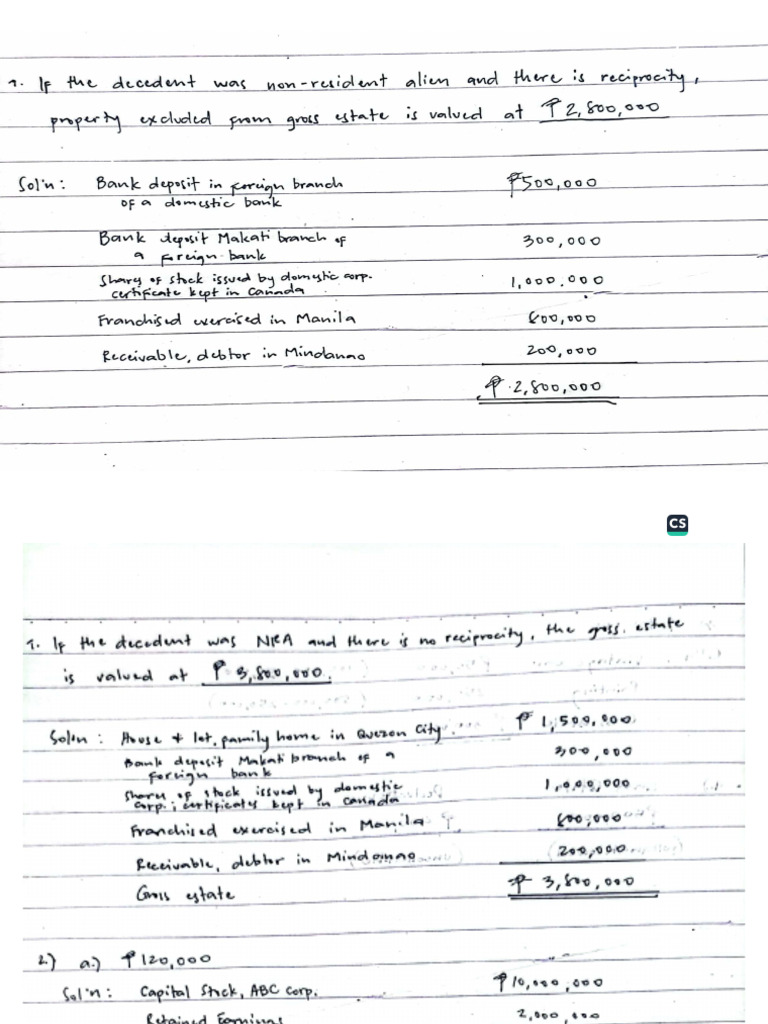 1. If the decedent was non-resident alien and there is reciprocity,
property excluded from gross estate is valued at ₱2,800,000
Sol'n: Bank deposit in foreign branch ₱500,000
of a domestic bank
Bank deposit Makati branch of 300,000
a foreign bank
Share of stock issued by domestic corp. 1,000.000
certificate kept in Canada
Franchised exercised in Manila 800,000
Receivable, debtor in Mindanao 200,000
₱ 2,800,000
CS
1. If the decedent was NRA and there is no reciprocity, the gross estate
is valued at ₱ 3,800,000.
Sol'n: House & lot, family home in Quezon City ₱ 1,500,000
Bank deposit Makati branch of a 300,000
foreign bank
Share of stock issued by domestic 1,000,000
corp.; certificates kept in Canada
Franchised exercised in Manila 800,000
Receivable, debtor in Mindanao 200,000
Gross estate ₱ 3,800,000
2.) a.) ₱120,000
Sol'n: Capital Stock, ABC corp. ₱10,000,000
Retained Earnings 2,000,000